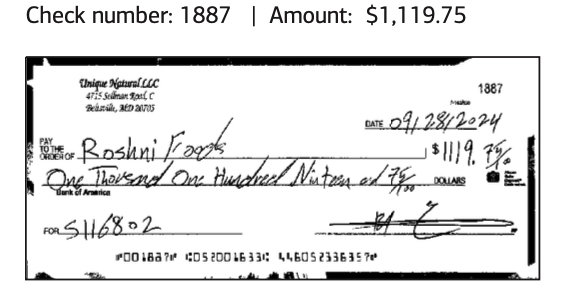 Check number: 1887 | Amount: $1,119.75
Unique Natural LLC
4715 Sellman Road, C
Beltsville, MD 20705
1887
DATE 09/28/2024
PAY TO THE ORDER OF Roshni Foods $1119. 75/00
One Thousand One Hundred Ninteen and 75/100 DOLLARS
Bank of America
FOR S116802
⑈001887⑈ ⑆052001633⑆ 446052336357⑈